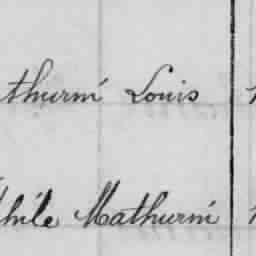 thurin Louis
hile Mathurin